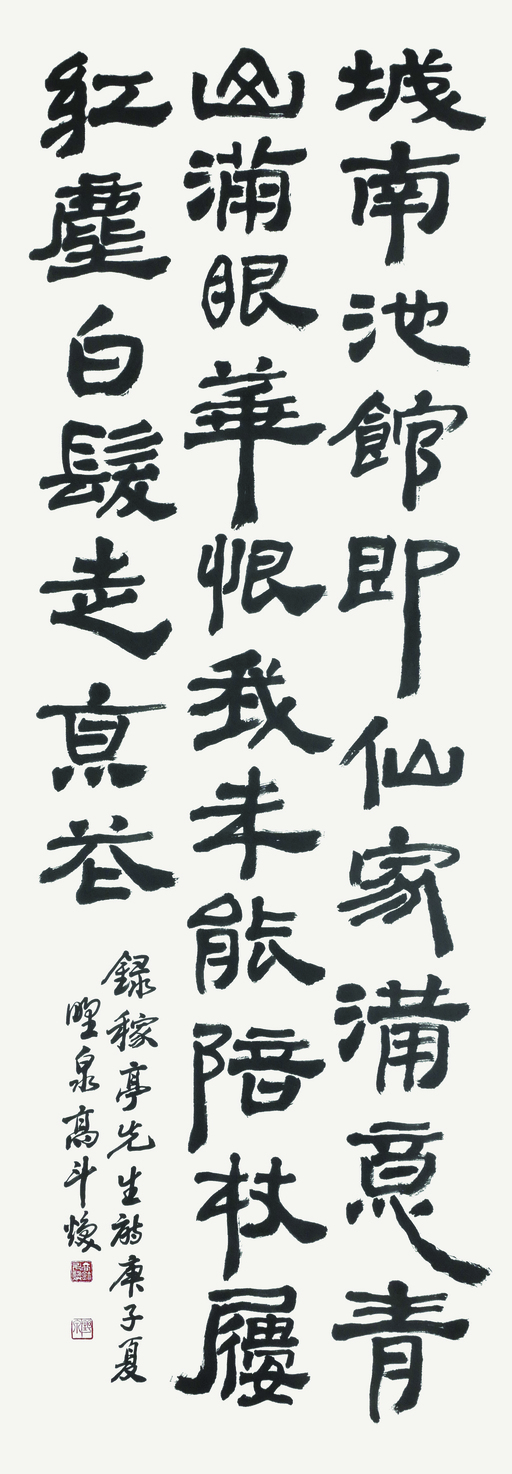 城南池館即仙家滿意青
山滿眼華恨我未能陪杖屨
紅塵白髮走京花
録稼亭先生詩庚子夏
泉高斗煥